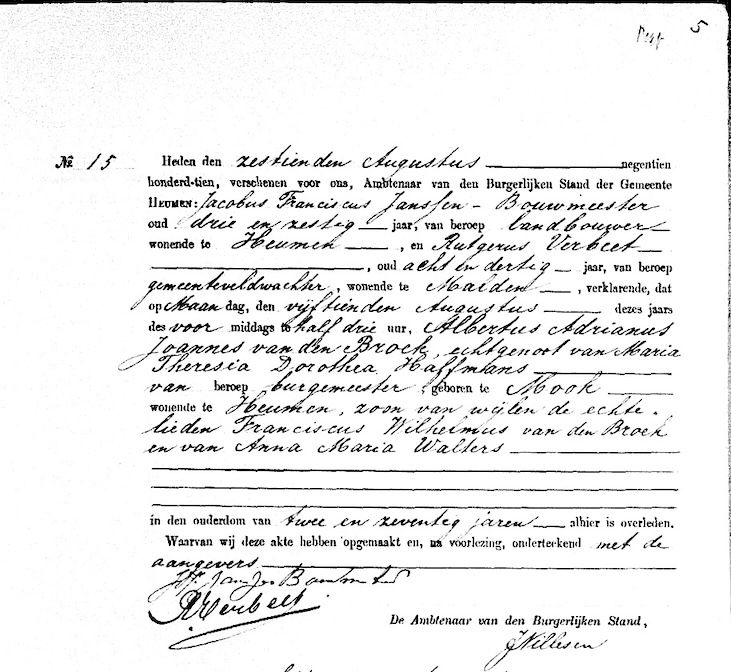 5
No 15 Heden den zestienden Augustus negentien
honderd-tien, verschenen voor ons, Ambtenaar van den Burgerlijken Stand der Gemeente
HEUMEN: Jacobus Franciscus Janssen - Bouwmeester
oud drie en zestig jaar, van beroep landbouwer
wonende te Heumen, en Rutgerus Verbeet
, oud acht en dertig jaar, van beroep
gemeenteveldwachter, wonende te Malden, verklarende, dat
op Maandag, den vijftienden Augustus dezes jaars
des voormiddags te half drie uur, Albertus Adrianus
Joannes van den Broek, echtgenoot van Maria
Theresia Dorothea Haffmans
van beroep burgemeester, geboren te Mook
wonende te Heumen, zoon van wijlen de echte-
lieden Franciscus Wilhelmus van den Broek
en van Anna Maria Walters
in den ouderdom van twee en zeventig jaren alhier is overleden.
Waarvan wij deze akte hebben opgemaakt en, na voorlezing, onderteekend met de
aangevers
RVerbeet
De Ambtenaar van den Burgerlijken Stand,
JWillesen